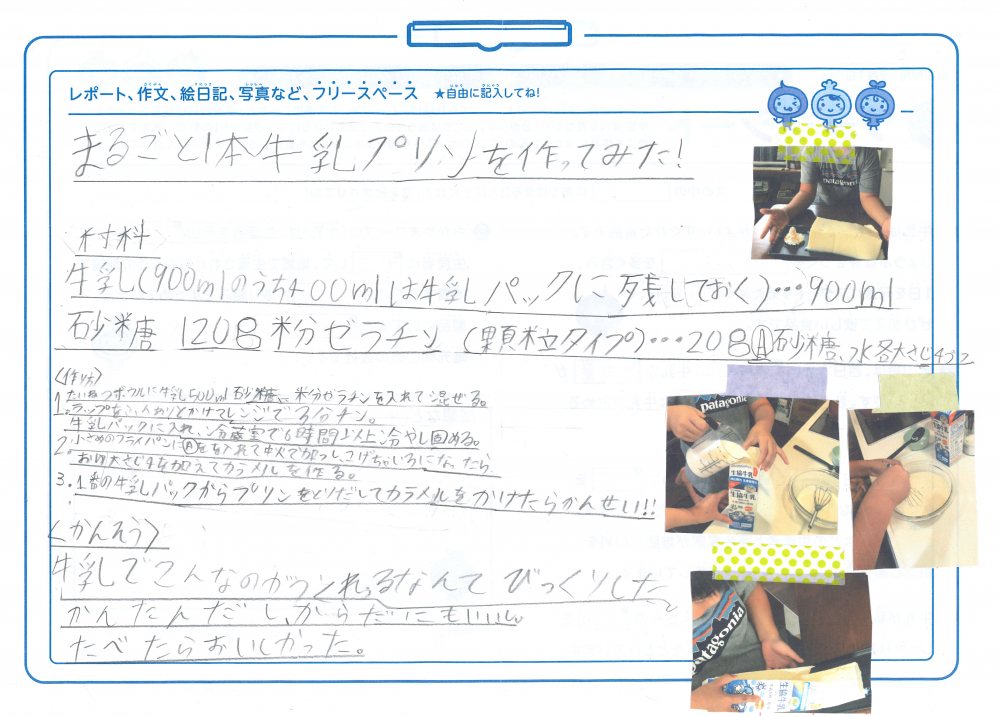 レポート、作文、絵日記、写真など、フリースペース ★自由に記入してね!
まるごと1本牛乳プリンを作ってみた!
〈材料〉
牛乳(900mlのうち400mlは牛乳パックに残しておく)…900ml
砂糖 120g 粉ゼラチン (顆粒タイプ)…20g Ⓐ砂糖、水各大さじ4づつ
〈作り方〉
1. たいねつボウルに牛乳500ml 砂糖、粉ゼラチンを入れて混ぜる。
ラップをふんわりとかけてレンジで3分チン。
牛乳パックに入れ、冷蔵室で6時間以上冷やし固める。
2. 小さめのフライパンにⒶを入れて中火で加っし、こげちゃいろになったら
お湯大さじ4を加えてカラメルを作る。
3. 1番の牛乳パックからプリンをとりだしてカラメルをかけたらかんせい!!
〈かんそう〉
牛乳でこんなのがつくれるなんて びっくりした
かんたんだし、からだにもいいし。
たべたらおいしかった。
patagonia
patagonia
生協牛乳
生協牛乳
patagonia
生協牛乳